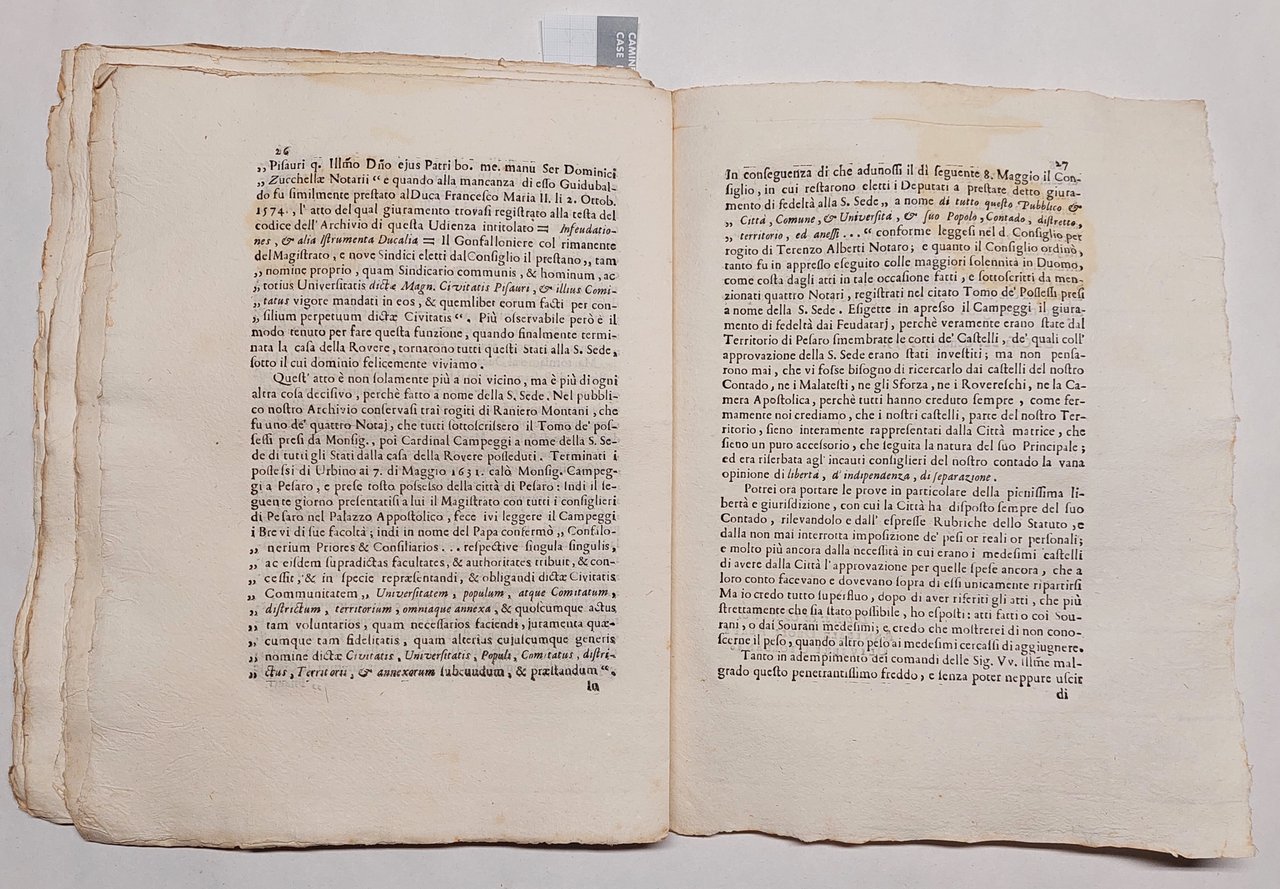 CAMIN
CASE
26
„ Piſauri q. Illm̃o Dño ejus Patri bo. me. manu Ser Dominici
„ Zucchellæ Notarii “ e quando alla mancanza di eſſo Guidubal-
do fu ſimilmente preſtato al Duca Franceſco Maria II. li 2. Ottob.
1574., l' atto del qual giuramento trovaſi regiſtrato alla teſta del
codice dell' Archivio di queſta Udienza intitolato = Infeudatio-
nes, & alia Iſtrumenta Ducalia = Il Gonfalloniere col rimanente
del Magiſtrato, e nove Sindici eletti dal Conſiglio il preſtano „ tam
„ nomine proprio, quam Sindicario communis, & hominum, ac
„ totius Univerſitatis dictæ Magn. Civitatis Piſauri, & illius Comi-
„ tatus vigore mandati in eos, & quemlibet eorum facti per con-
„ ſilium perpetuum dictæ Civitatis “. Più oſſervabile però è il
modo tenuto per fare queſta funzione, quando finalmente termi-
nata la caſa della Rovere, tornarono tutti queſti Stati alla S. Sede,
ſotto il cui dominio felicemente viviamo.
Queſt' atto è non ſolamente più a noi vicino, ma è più di ogni
altra coſa deciſivo, perchè fatto a nome della S. Sede. Nel pubbli-
co noſtro Archivio conſervaſi trai rogiti di Raniero Montani, che
fu uno de' quattro Notaj, che tutti ſottoſcriſſero il Tomo de' poſ-
ſeſſi preſi da Monſig., poi Cardinal Campeggi a nome della S. Se-
de di tutti gli Stati dalla caſa della Rovere poſſeduti. Terminati i
poſſeſſi di Urbino ai 7. di Maggio 1631. calò Monſig. Campeg-
gi a Peſaro, e preſe toſto poſſeſſo della città di Peſaro: Indi il ſe-
guente giorno preſentatiſi a lui il Magiſtrato con tutti i conſiglieri
di Peſaro nel Palazzo Appoſtolico, fece ivi leggere il Campeggi
i Brevi di ſue facoltà; indi in nome del Papa confermò „ Confalo-
„ nerium Priores & Conſiliarios... reſpective ſingula ſingulis,
„ ac eiſdem ſupradictas facultates, & authoritates tribuit, & con-
„ ceſſit, & in ſpecie repræſentandi, & obligandi dictæ Civitatis
„ Communitatem „ Univerſitatem, populum, atque Comitatum,
„ diſtrictum, territorium, omniaque annexa, & quoſcumque actus
„ tam voluntarios, quam neceſſarios faciendi, juramenta quæ-
„ cumque tam fidelitatis, quam alterius cujuſcumque generis
„ nomine dictæ Civitatis, Univerſitatis, Populi, Comitatus, diſtri-
„ ctus, Territorii, & annexorum ſubeundum, & præſtandum “.
In
27
In conſeguenza di che adunoſſi il dì ſeguente 8. Maggio il Con-
ſiglio, in cui reſtarono eletti i Deputati a preſtare detto giura-
mento di fedeltà alla S. Sede „ a nome di tutto queſto Pubblico &
„ Città, Comune, & Univerſità, & ſuo Popolo, Contado, diſtretto,
„ territorio, ed aneſſi... “ conforme leggeſi nel d. Conſiglio per
rogito di Terenzo Alberti Notaro; e quanto il Conſiglio ordinò,
tanto fu in appreſſo eſeguito colle maggiori ſolennità in Duomo,
come coſta dagli atti in tale occaſione fatti, e ſottoſcritti da men-
zionati quattro Notari, regiſtrati nel citato Tomo de' Poſſeſſi preſi
a nome della S. Sede. Eſigette in apreſſo il Campeggi il giura-
mento di fedeltà dai Feudatarj, perchè veramente erano ſtate dal
Territorio di Peſaro ſmembrate le corti de' Caſtelli, de' quali coll'
approvazione della S. Sede erano ſtati inveſtiti; ma non penſa-
rono mai, che vi foſſe biſogno di ricercarlo dai caſtelli del noſtro
Contado, ne i Malateſti, ne gli Sforza, ne i Rovereſchi, ne la Ca-
mera Apoſtolica, perchè tutti hanno creduto ſempre, come fer-
mamente noi crediamo, che i noſtri caſtelli, parte del noſtro Ter-
ritorio, ſieno interamente rappreſentati dalla Città matrice, che
ſieno un puro acceſſorio, che ſeguita la natura del ſuo Principale;
ed era riſerbata agl' incauti conſiglieri del noſtro contado la vana
opinione di libertà, d' indipendenza, di ſeparazione.
Potrei ora portare le prove in particolare della pieniſſima li-
bertà e giuriſdizione, con cui la Città ha diſpoſto ſempre del ſuo
Contado, rilevandolo e dall' eſpreſſe Rubriche dello Statuto, e
dalla non mai interrotta impoſizione de' peſi or reali or perſonali;
e molto più ancora dalla neceſſità in cui erano i medeſimi caſtelli
di avere dalla Città l' approvazione per quelle ſpeſe ancora, che a
loro conto facevano e dovevano ſopra di eſſi unicamente ripartirſi
Ma io credo tutto ſuperfluo, dopo di aver riferiti gli atti, che più
ſtrettamente che ſia ſtato poſſibile, ho eſpoſti: atti fatti o coi Sou-
rani, o dai Sourani medeſimi; e credo che moſtrerei di non cono-
ſcerne il peſo, quando altro peſo ai medeſimi cercaſſi di aggiugnere.
Tanto in adempimento dei comandi delle Sig. Vv. illm̃e mal-
grado queſto penetrantiſſimo freddo, e ſenza poter neppure uſcir
di